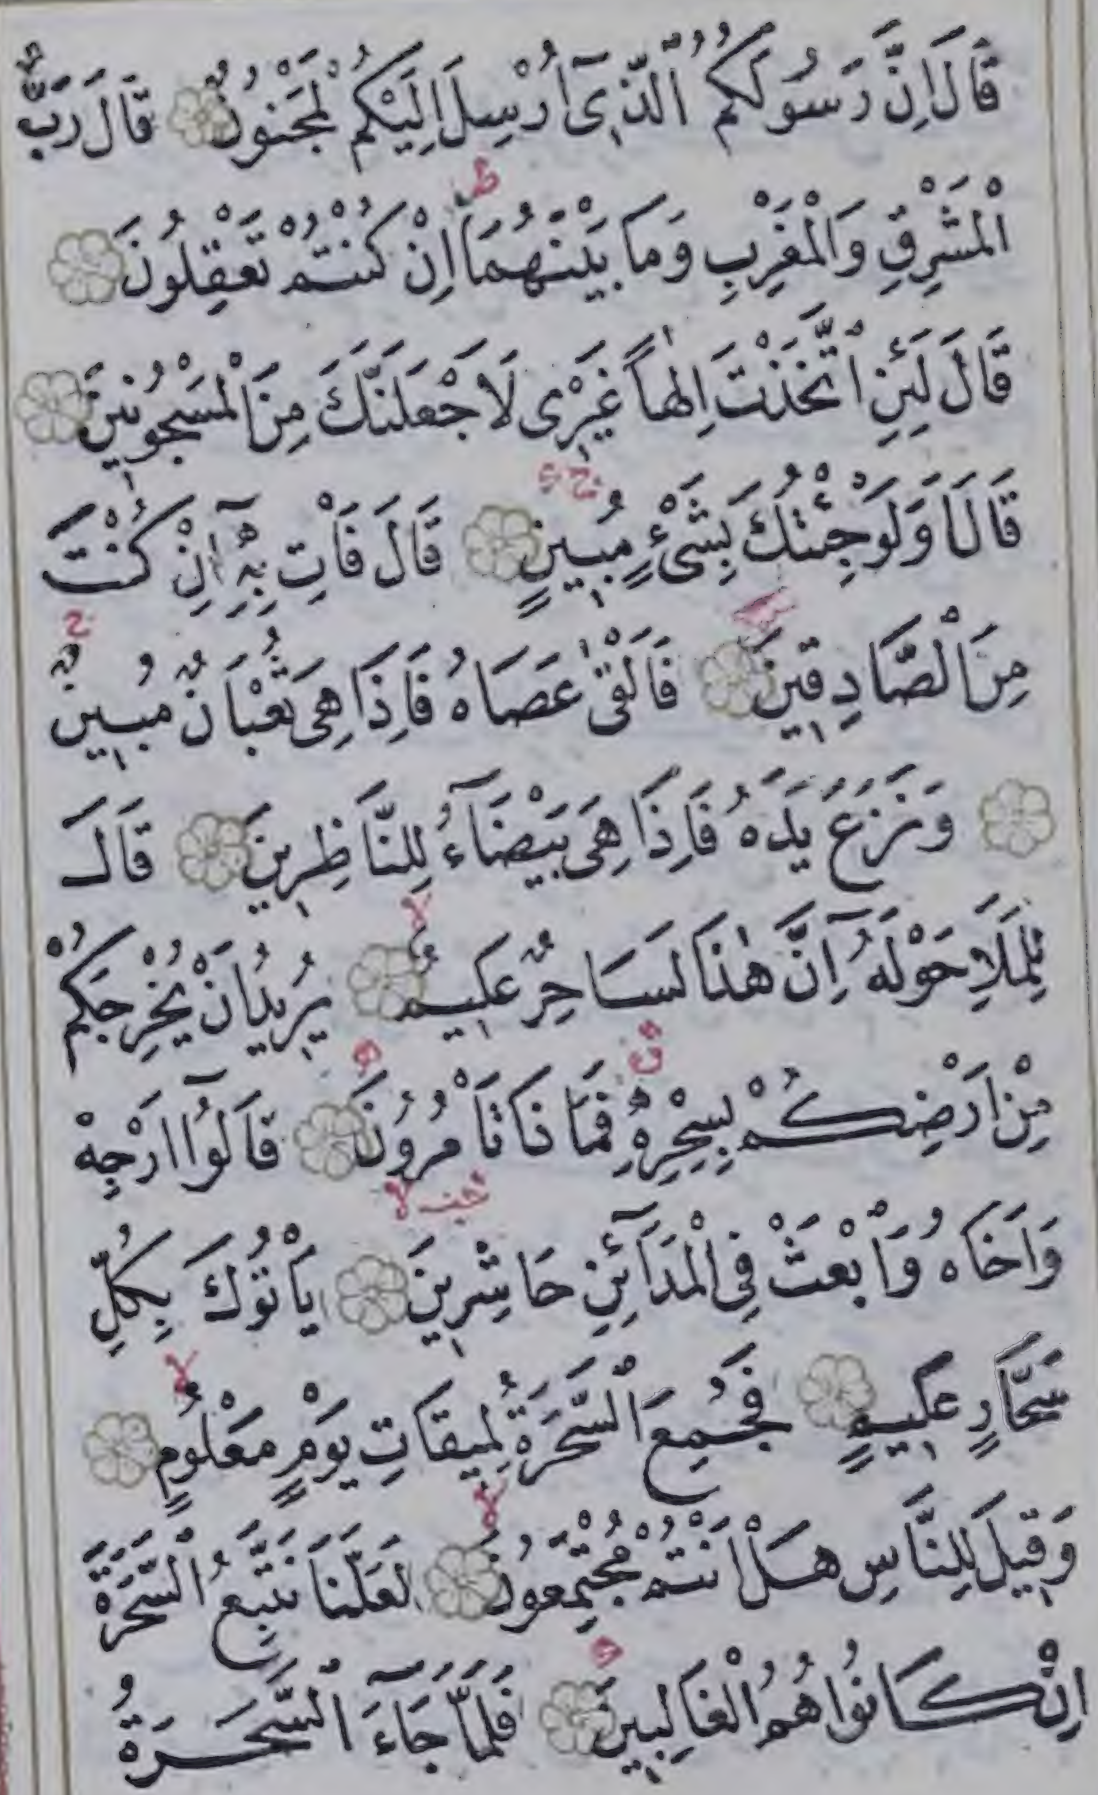 قَالَ اِنَّ رَسُولَكُمُ الَّذ۪ٓى اُرْسِلَ اِلَيْكُمْ لَمَجْنُونٌ قَالَ رَبُّ
الْمَشْرِقِ وَالْمَغْرِبِ وَمَا بَيْنَهُمَا اِنْ كُنْتُمْ تَعْقِلُونَ
قَالَ لَئِنِ اتَّخَذْتَ اِلٰهاً غَيْر۪ى لَاَجْعَلَنَّكَ مِنَ الْمَسْجُون۪ينَ
قَالَ اَوَلَوْ جِئْتُكَ بِشَىْءٍ مُب۪ينٍ قَالَ فَاْتِ بِه۪ٓ اِنْ كُنْتَ
مِنَ الصَّادِق۪ينَ فَاَلْقٰى عَصَاهُ فَاِذَا هِىَ ثُعْبَانٌ مُب۪ينٌ
وَنَزَعَ يَدَهُ فَاِذَا هِىَ بَيْضَٓاءُ لِلنَّاظِر۪ينَ قَالَ
لِلْمَلَاِ حَوْلَهُٓ اِنَّ هٰذَا لَسَاحِرٌ عَل۪يمٌ يُر۪يدُ اَنْ يُخْرِجَكُمْ
مِنْ اَرْضِكُمْ بِسِحْرِه۪ فَمَاذَا تَاْمُرُونَ قَالُٓوا اَرْجِهْ
وَاَخَاهُ وَابْعَثْ فِى الْمَدَٓائِنِ حَاشِر۪ينَ يَاْتُوكَ بِكُلِّ
سَحَّارٍ عَل۪يمٍ فَجُمِعَ السَّحَرَةُ لِم۪يقَاتِ يَوْمٍ مَعْلُومٍ
وَق۪يلَ لِلنَّاسِ هَلْ اَنْتُمْ مُجْتَمِعُونَ لَعَلَّنَا نَتَّبِعُ السَّحَرَةَ
اِنْ كَانُوا هُمُ الْغَالِب۪ينَ فَلَمَّا جَٓاءَ السَّحَرَةُ